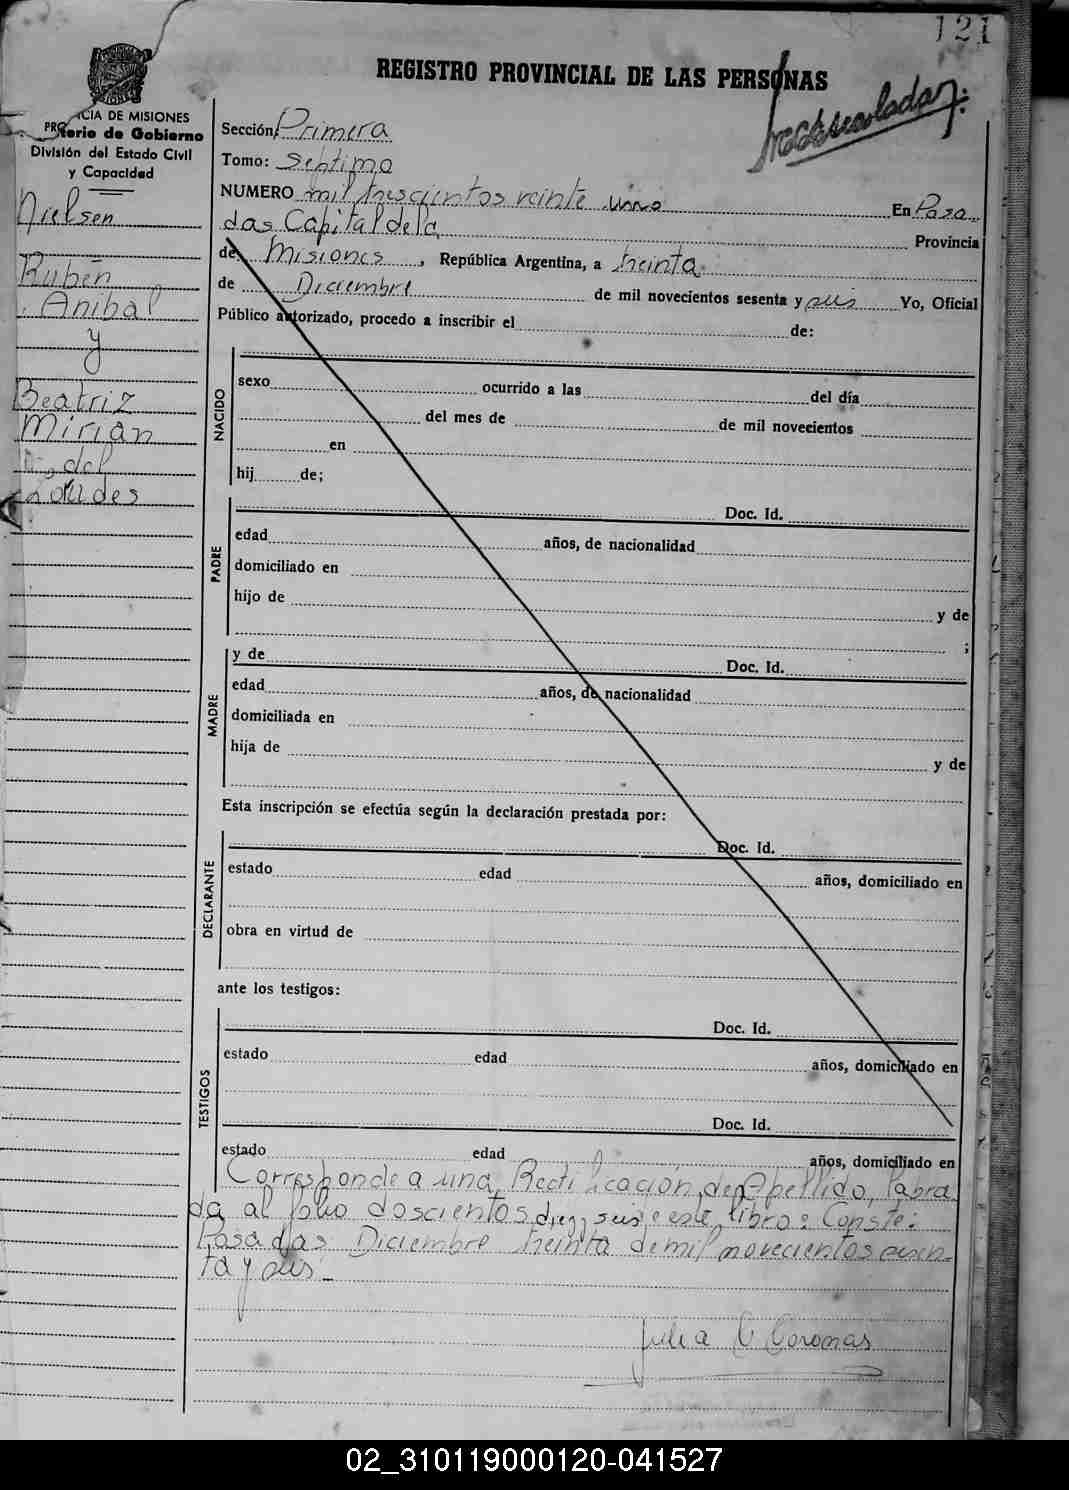 121
REGISTRO PROVINCIAL DE LAS PERSONAS
CIA DE MISIONES
terio de Gobierno
División del Estado Civil
y Capacidad
Nielsen
Rubén
Anibal
y
Beatriz
Mirian
del
Lourdes
Sección: Primera
Tomo: Septimo
NUMERO mil trescientos veinte uno En Posa
das Capital de la Provincia
de Misiones, República Argentina, a treinta
de Diciembre de mil novecientos sesenta y seis Yo, Oficial
Público autorizado, procedo a inscribir el de:
NACIDO
sexo ocurrido a las del día
del mes de de mil novecientos
en
hij de;
PADRE
Doc. Id.
edad años, de nacionalidad
domiciliado en
hijo de y de
;
MADRE
y de Doc. Id.
edad años, de nacionalidad
domiciliada en
hija de y de
Esta inscripción se efectúa según la declaración prestada por:
DECLARANTE
Doc. Id.
estado edad años, domiciliado en
obra en virtud de
ante los testigos:
TESTIGOS
Doc. Id.
estado edad años, domiciliado en
Doc. Id.
estado edad años, domiciliado en
Corresponde a una Rectificación de Apellido, labra
da al folio doscientos diez y seis este libro: Conste:
Posadas Diciembre treinta de mil novecientos sesen-
ta y seis -
Julia C Coronas
02_310119000120-041527